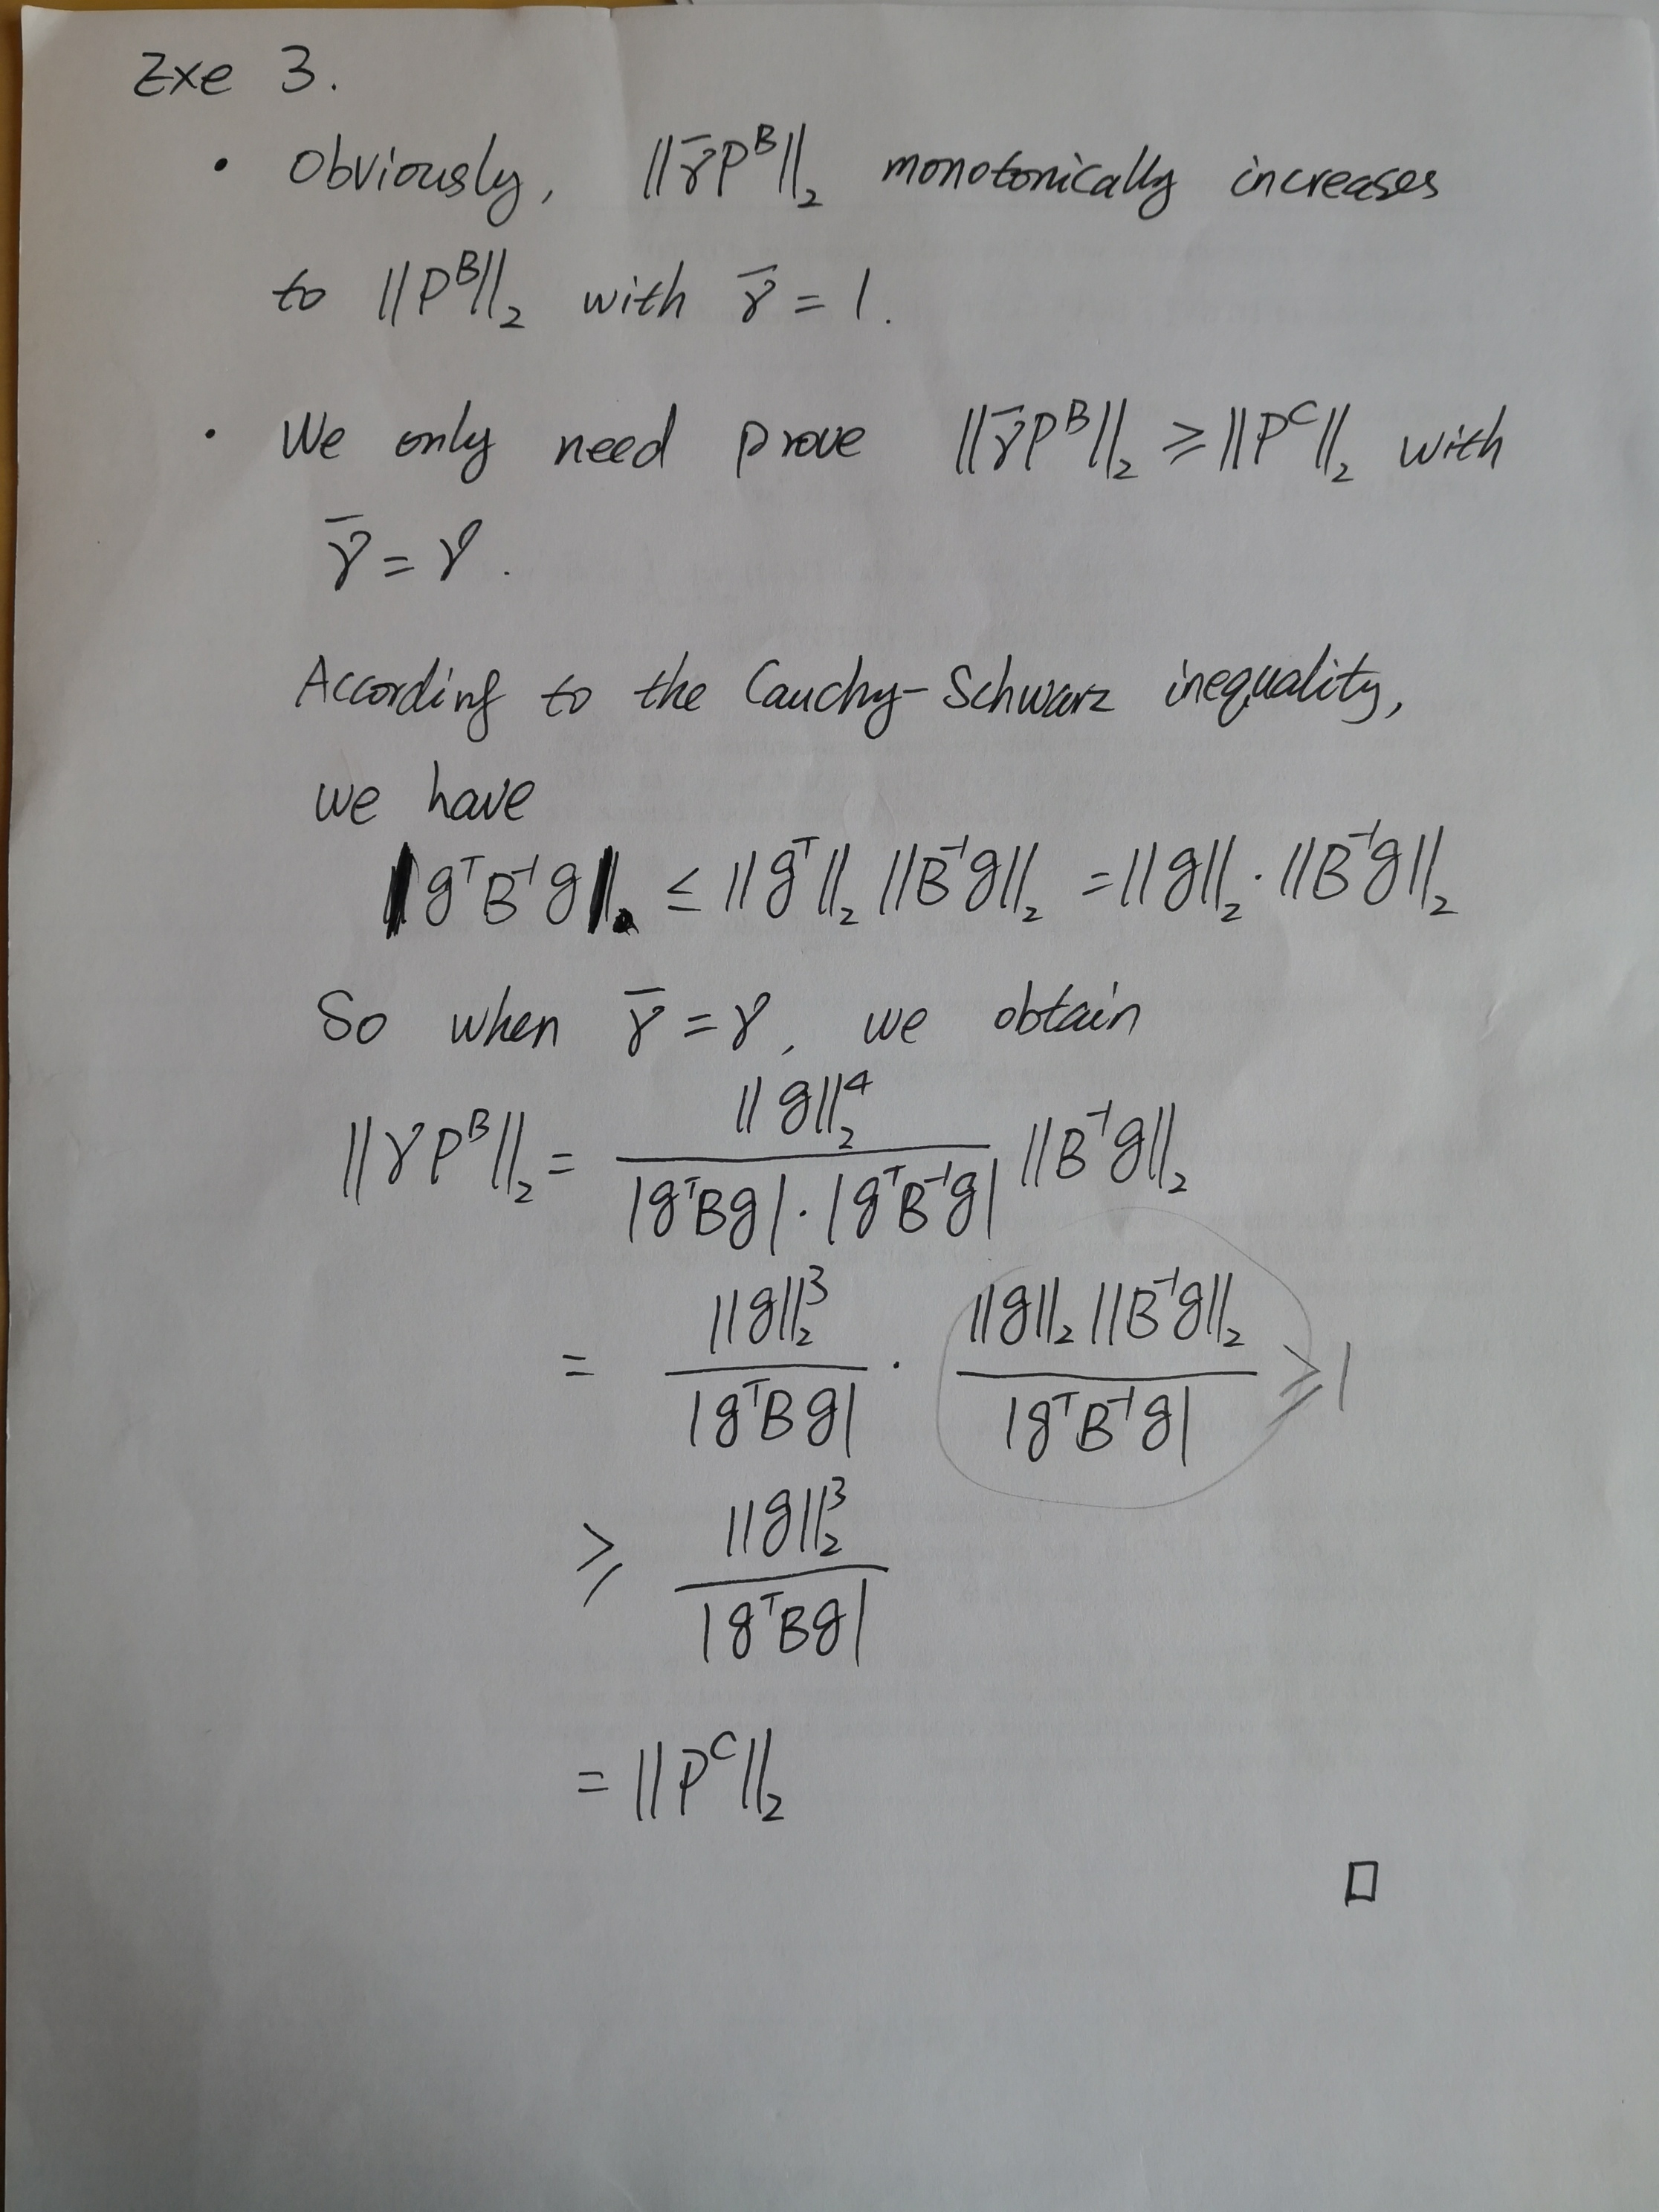 Exe 3.
• Obviously, ||γ̄P^B||₂ monotonically increases
to ||P^B||₂ with γ̄ = 1.
• We only need prove ||γ̄P^B||₂ ≥ ||P^C||₂ with
γ̄ = γ.
According to the Cauchy-Schwarz inequality,
we have
|gᵀB⁻¹g| ≤ ||gᵀ||₂ ||B⁻¹g||₂ = ||g||₂ · ||B⁻¹g||₂
So when γ̄ = γ, we obtain
||γP^B||₂ = ||g||₂⁴ / (|gᵀBg| · |gᵀB⁻¹g|) ||B⁻¹g||₂
= ||g||₂³ / |gᵀBg| · ||g||₂ ||B⁻¹g||₂ / |gᵀB⁻¹g| ≥ 1
≥ ||g||₂³ / |gᵀBg|
= ||P^C||₂
□